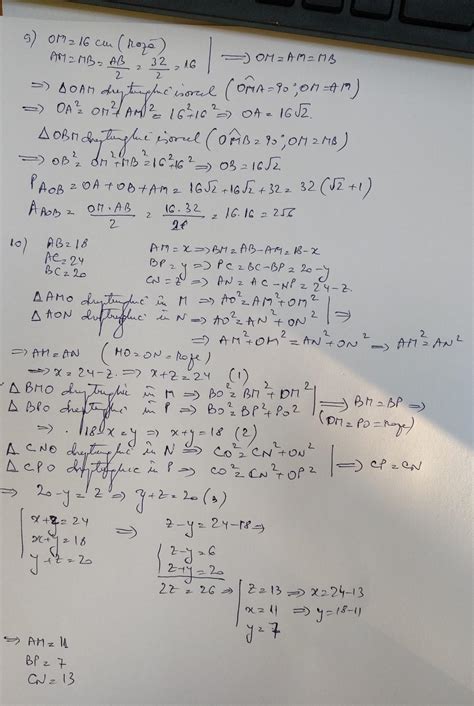 9) OM=16 cm (Rază)
AM=MB=AB/2=32/2=16 | ⟹ OM=AM=MB
⟹ ΔOAM dreptunghic isoscel (OM̂A=90°, OM=AM)
⟹ OA²=OM²+AM²=16²+16² ⟹ OA=16√2.
ΔOBM dreptunghic isoscel (OM̂B=90°, OM=MB)
⟹ OB²=OM²+MB²=16²+16² ⟹ OB=16√2
P AOB=OA+OB+AM=16√2+16√2+32=32(√2+1)
A AOB=OM·AB/2=16·32/2=16·16=256
10) AB=18 AM=x ⟹ BM=AB-AM=18-x
AC=24 BP=y ⟹ PC=BC-BP=20-y
BC=20 CN=z ⟹ AN=AC-NP=24-z.
ΔAMO dreptunghic în M ⟹ AO²=AM²+OM²
ΔAON dreptunghic în N ⟹ AO²=AN²+ON² | ⟹
⟹ AM²+OM²=AN²+ON² ⟹ AM²=AN²
⟹ AM=AN (MO=ON=Raze)
⟹ x=24-z. ⟹ x+z=24 (1)
ΔBMO dreptunghic în M ⟹ BO²=BM²+OM²
ΔBPO dreptunghic în P ⟹ BO²=BP²+PO² | ⟹ BM=BP ⟹
(OM=PO=Raze)
⟹ 18-x=y ⟹ x+y=18 (2)
ΔCNO dreptunghic în N ⟹ CO²=CN²+ON²
ΔCPO dreptunghic în P ⟹ CO²=CN²+OP² | ⟹ CP=CN
⟹ 20-y=z ⟹ y+z=20 (3)
x+z=24 ⟹ z-y=24-18 ⟹
x+y=18
y+z=20
z-y=6
z+y=20
2z=26 ⟹ z=13 ⟹ x=24-13
x=11 ⟹ y=18-11
y=7
⟹ AM=11
BP=7
CN=13